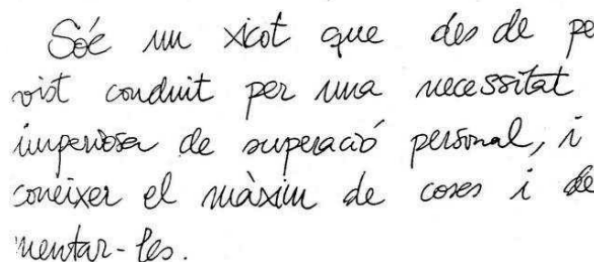 Sóc un xicot que des de pe
vist conduit per una necessitat
imperiosa de superació personal, i
conèixer el màxim de coses i de
mentar-les.